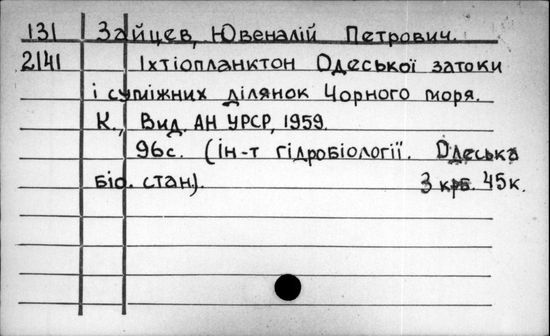 131 Зайцев, Ювеналій Петрович.
2141 Іхтіопланктон Одеської затоки
і суміжних ділянок Чорного моря.
К., Вид. АН УРСР, 1959.
96с. (Ін-т гідробіології. Одеська
біо. стан.). 3 крб. 45к.